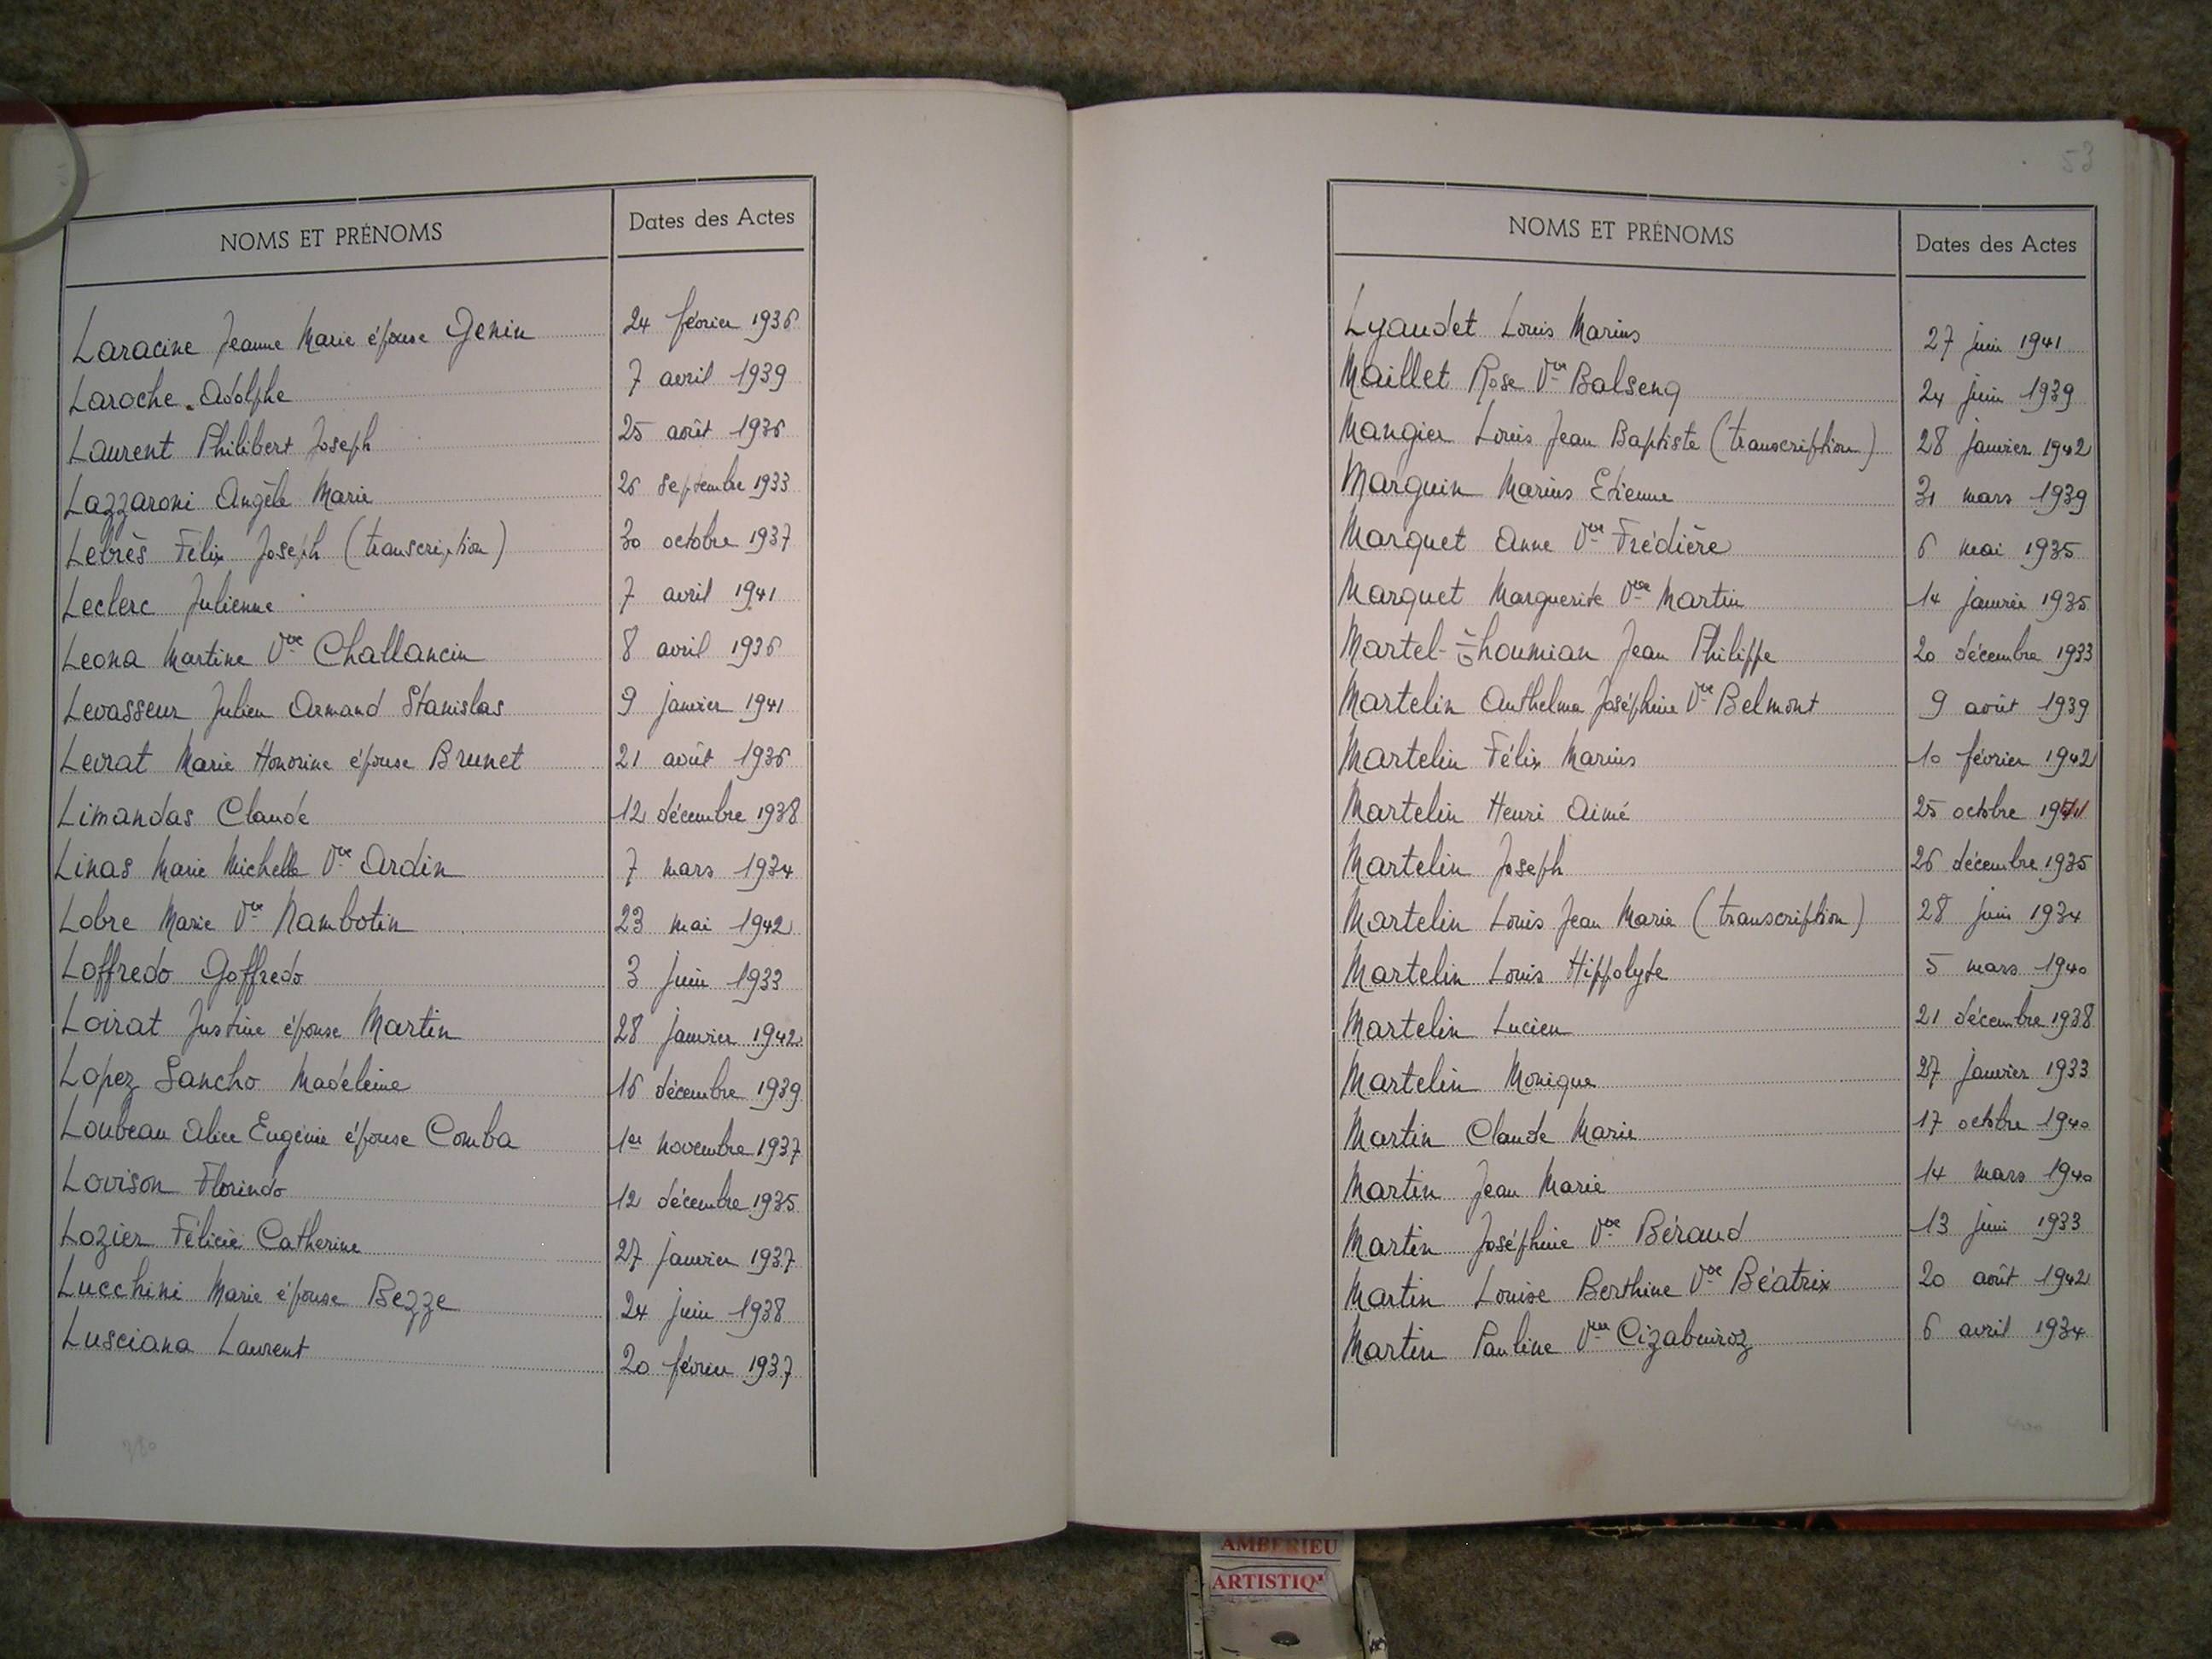 NOMS ET PRÉNOMS Dates des Actes
Laracine Jeanne Marie épouse Genin 24 février 1936
Laroche Adolphe 7 avril 1939
Laurent Philibert Joseph 25 août 1936
Lazzaroni Angèle Marie 26 septembre 1933
Lebrès Félix Joseph (transcription) 30 octobre 1937
Leclerc Julienne 7 avril 1941
Leona Martine Vve Challancin 8 avril 1936
Levasseur Julien Armand Stanislas 9 janvier 1941
Levrat Marie Honorine épouse Brunet 21 août 1936
Limandas Claude 12 décembre 1938
Linas Marie Michelle Vve Ardin 7 mars 1934
Lobre Marie Vve Nambotin 23 mai 1942
Loffredo Goffredo 3 juin 1933
Loirat Justine épouse Martin 28 janvier 1942
Lopez Sancho Madeleine 16 décembre 1939
Loubeau Alice Eugénie épouse Comba 1er novembre 1937
Lovison Florindo 12 décembre 1935
Lozier Félicie Catherine 27 janvier 1937
Lucchini Marie épouse Bezze 24 juin 1938
Lusciana Laurent 20 février 1937
53
NOMS ET PRÉNOMS Dates des Actes
Lyaudet Louis Marius 27 juin 1941
Maillet Rose Vve Balseng 24 juin 1939
Mangier Louis Jean Baptiste (transcription) 28 janvier 1942
Marguin Marius Etienne 31 mars 1939
Marquet Anne Vve Frédière 6 mai 1935
Marquet Marguerite Vve Martin 14 janvier 1935
Martel- Jean Philippe 20 décembre 1933
Martelin Anthelma Joséphine Vve Belmont 9 août 1939
Martelin Félix Marius 10 février 1942
Martelin Henri Aimé 25 octobre 1941
Martelin Joseph 26 décembre 1935
Martelin Louis Jean Marie (transcription) 28 juin 1934
Martelin Louis Hippolyte 5 mars 1940
Martelin Lucien 21 décembre 1938
Martelin Monique 27 janvier 1933
Martin Claude Marie 17 octobre 1940
Martin Jean Marie 14 mars 1940
Martin Joséphine Vve Béraud 13 juin 1933
Martin Louise Berthine Vve Béatrix 20 août 1942
Martin Pauline Vve Cizabuiroz 6 avril 1934
AMBERIEU
ARTISTIQ